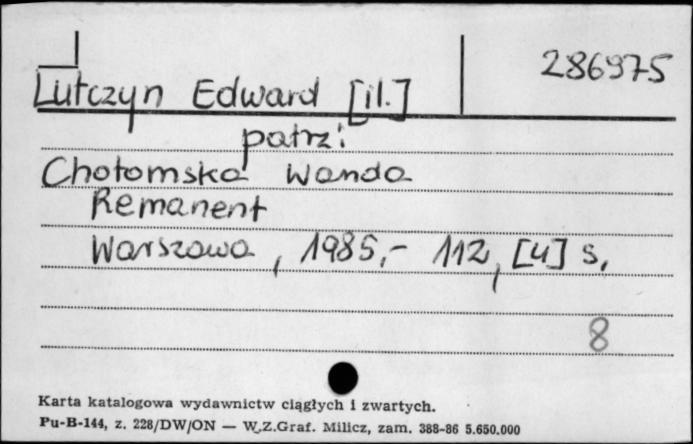 286975
Lutczyn Edward [il.]
patrz:
Chotomska Wanda
Remanent
Warszawa, 1985.- 112, [4] s.
8
Karta katalogowa wydawnictw ciągłych i zwartych.
Pu-B-144, z. 228/DW/ON — W.Z.Graf. Milicz, zam. 388-86 5.650.000